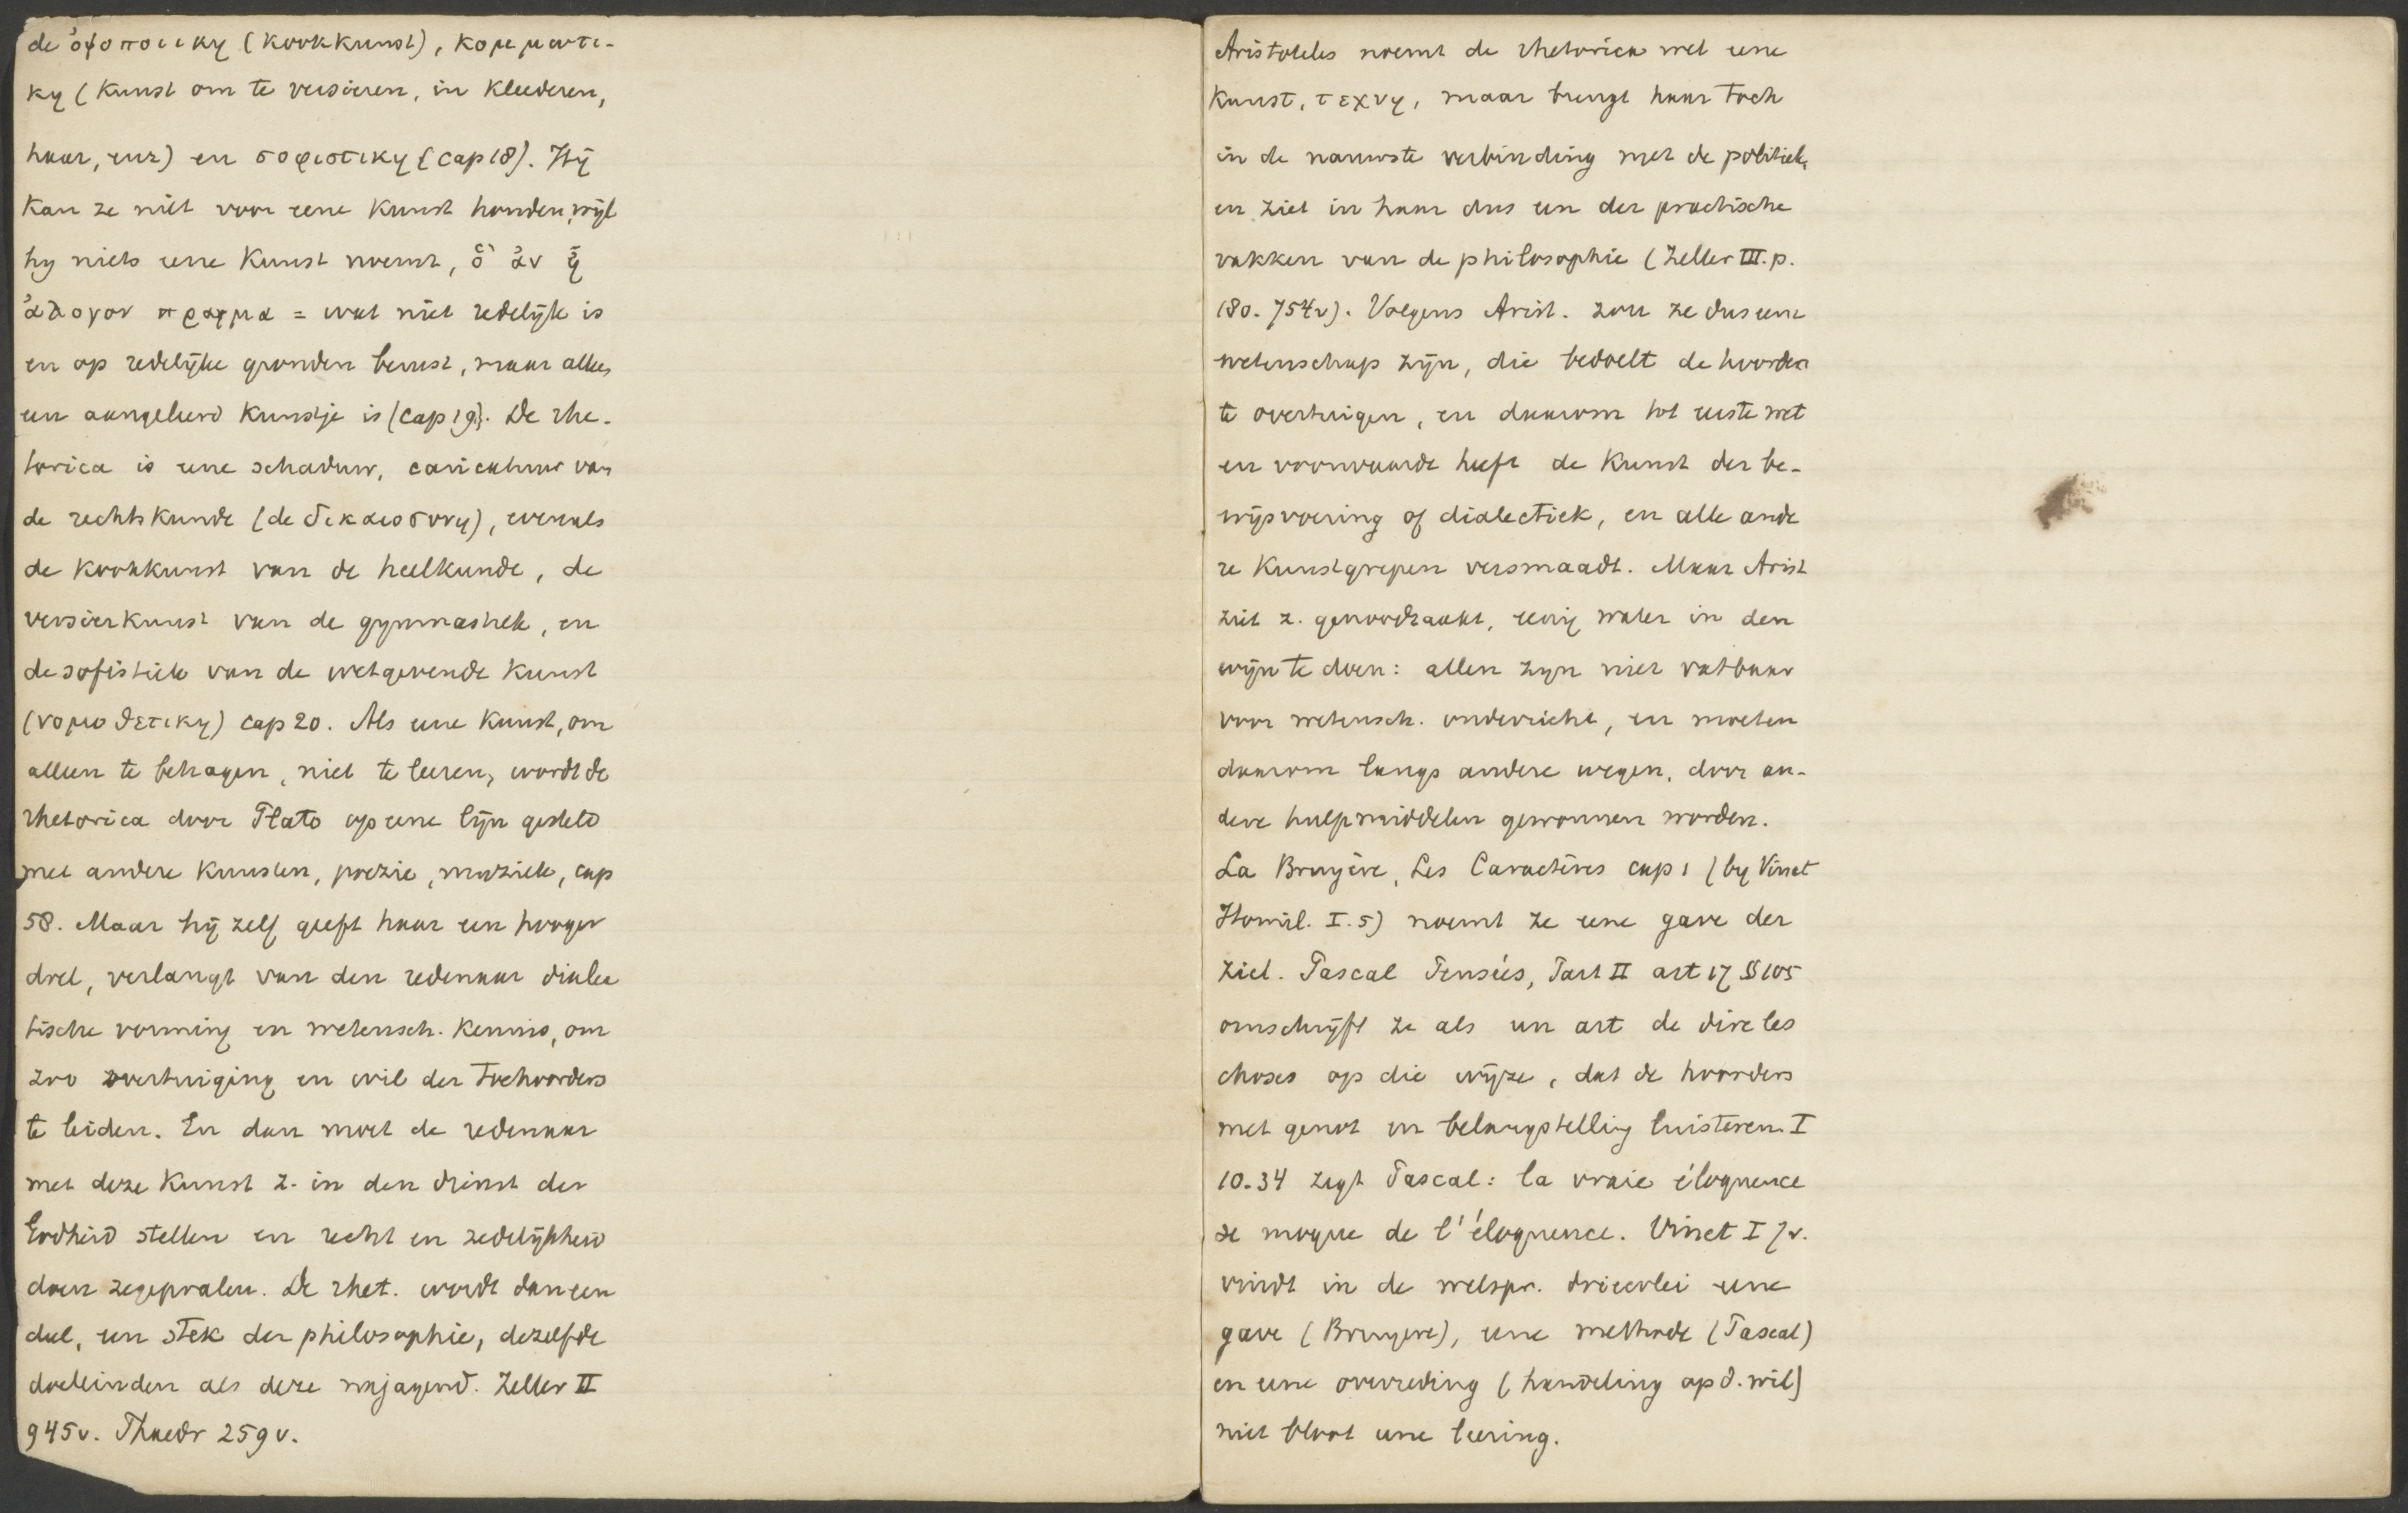 de ὀψοποιικη (kookkunst), κομμωτι-
κη (kunst om te versieren, in kleederen,
haar, enz) en σοφιστικη (cap 18). Hij
kan ze niet voor eene kunst houden, wijl
hy niets eene kunst noemt, ὃ ἀν ᾖ
ἀλογον πραγμα = wat niet redelijk is
en op redelijke gronden berust, maar alleen
een aangeleerd kunstje is (cap 19). De rhe-
torica is eene schaduw, caricatuur van
de rechtskunde (de δικαιοσυνη), evenals
de kookkunst van de heelkunde, de
versierkunst van de gymnastiek, en
de sofistiek van de wetgevende kunst
(νομοθετικη) cap 20. Als eene kunst, om
alleen te behagen, niet te leeren, wordt de
rhetorica door Plato op eene lijn gesteld
met andere kunsten, poezie, muziek, cap
58. Maar hij zelf geeft haar een hooger
doel, verlangt van den redenaar dialec
tische vorming en wetensch. kennis, om
zoo overtuiging en wil der toehoorders
te leiden. En dan moet de redenaar
met deze kunst z. in den dienst der
Godheid stellen en recht en zedelijkheid
doen zegepralen. De rhet. wordt dan een
deel, een stek der philosophie, dezelfde
doeleinden als deze najagend. Zeller II
945v. Phaedr 259v.
Aristoteles noemt de rhetorica wel eene
kunst, τεχνη, maar brengt haar toch
in de nauwste verbinding met de politiek,
en ziet in haar dus een der practische
vakken van de philosophie (Zeller III. p.
180. 754v). Volgens Arist. zou ze dus eene
wetenschap zijn, die bedoelt de hoorders
te overtuigen, en daarom tot eerste wet
en voorwaarde heeft de kunst der be-
wijsvoering of dialectiek, en alle ande
re kunstgrepen versmaadt. Maar Arist
ziet z. genoodzaakt, eenig water in den
wijn te doen: allen zyn niet vatbaar
voor wetensch. onderricht, en moeten
daarom langs andere wegen, door an-
dere hulpmiddelen gewonnen worden.
La Bruyère, Les Caractères cap 1 (by Vinet
Homil. I. 5) noemt ze eene gave der
ziel. Pascal Pensées, Part II art 17 § 105
omschrijft ze als un art de dire les
choses op die wijze, dat de hoorders
met genot en belangstelling luisteren. I
10.34 zegt Pascal: la vraie éloquence
se moque de l'éloquence. Vinet I 7v.
vindt in de welspr. drieerlei eene
gave (Bruyere), eene methode (Pascal)
en eene overreding (handeling op d. wil)
niet bloot eene leering.